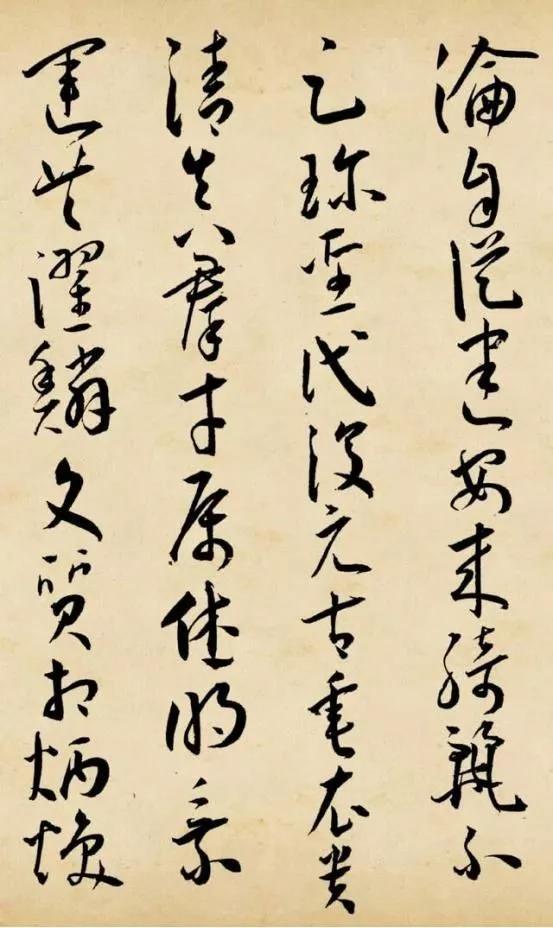 淪自從建安来綺麗不
足珎聖代復元古垂衣貴
清真羣才属休明乗
運共躍鱗文質相炳煥